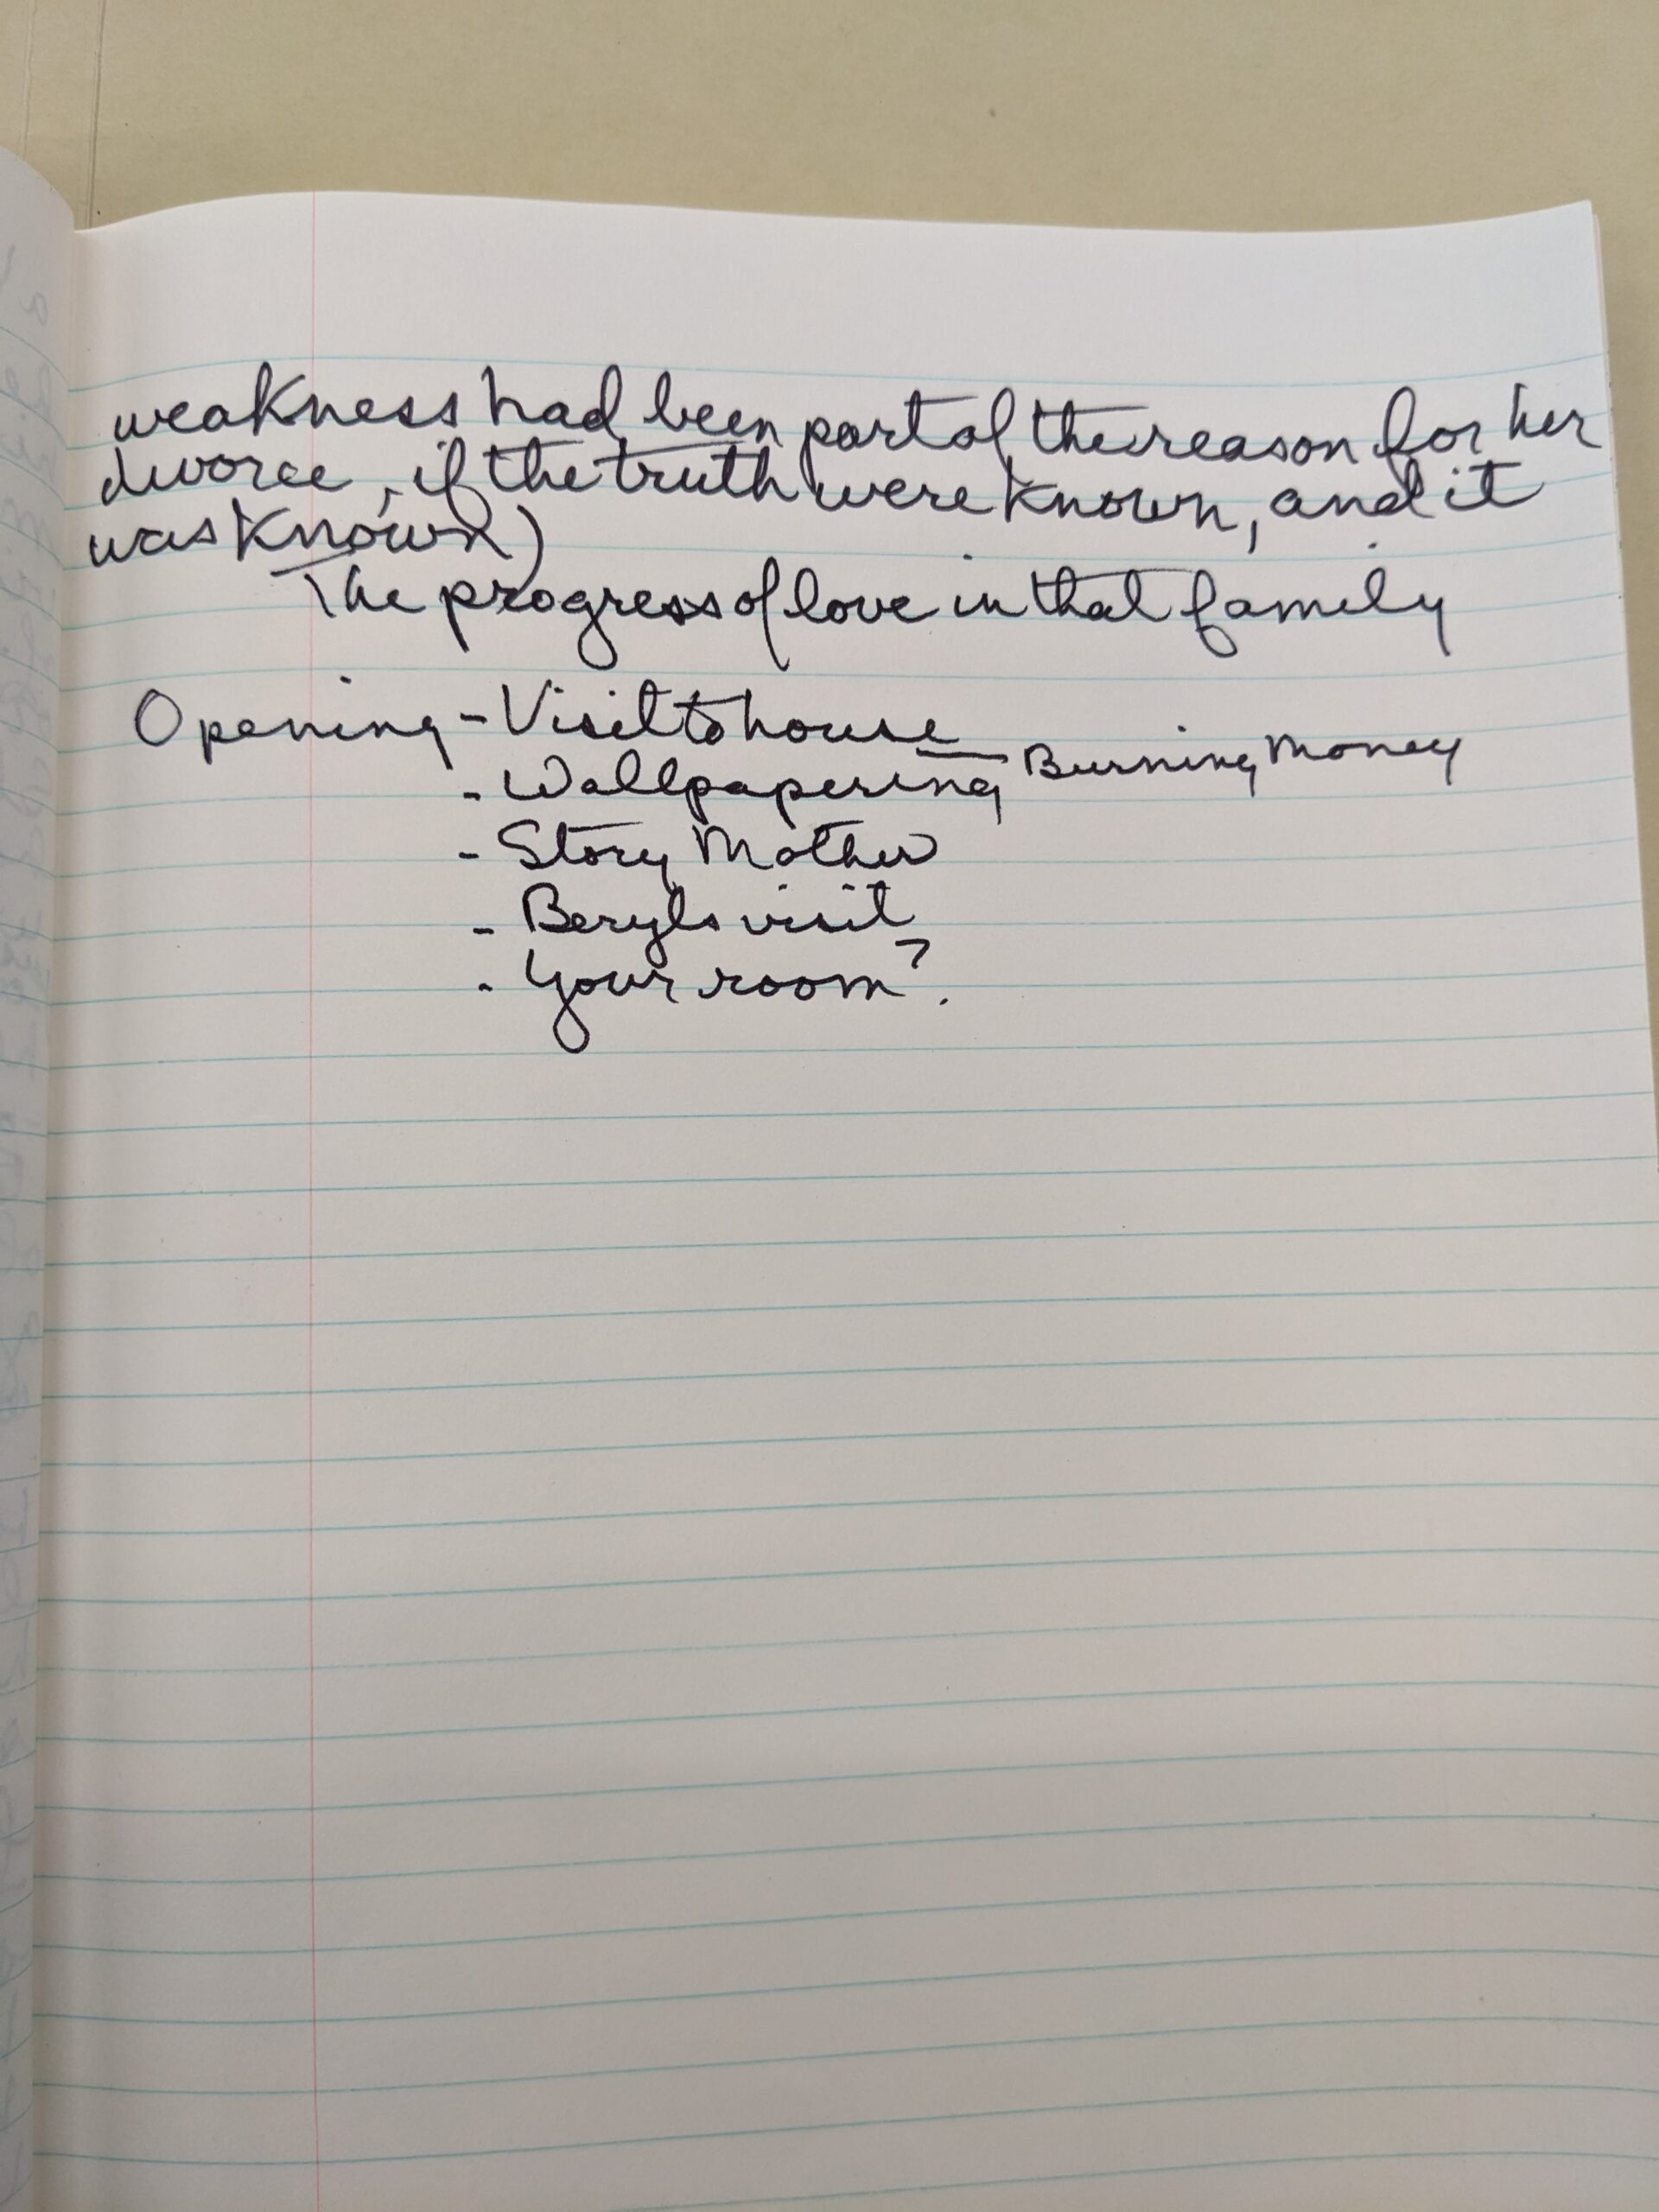 weakness had been part of the reason for her
divorce, if the truth were known, and it
was known)
The progress of love in that family
Opening - Visit to house
- Wallpapering Burning Money
- Story Mother
- Beryls visit
- Your room?